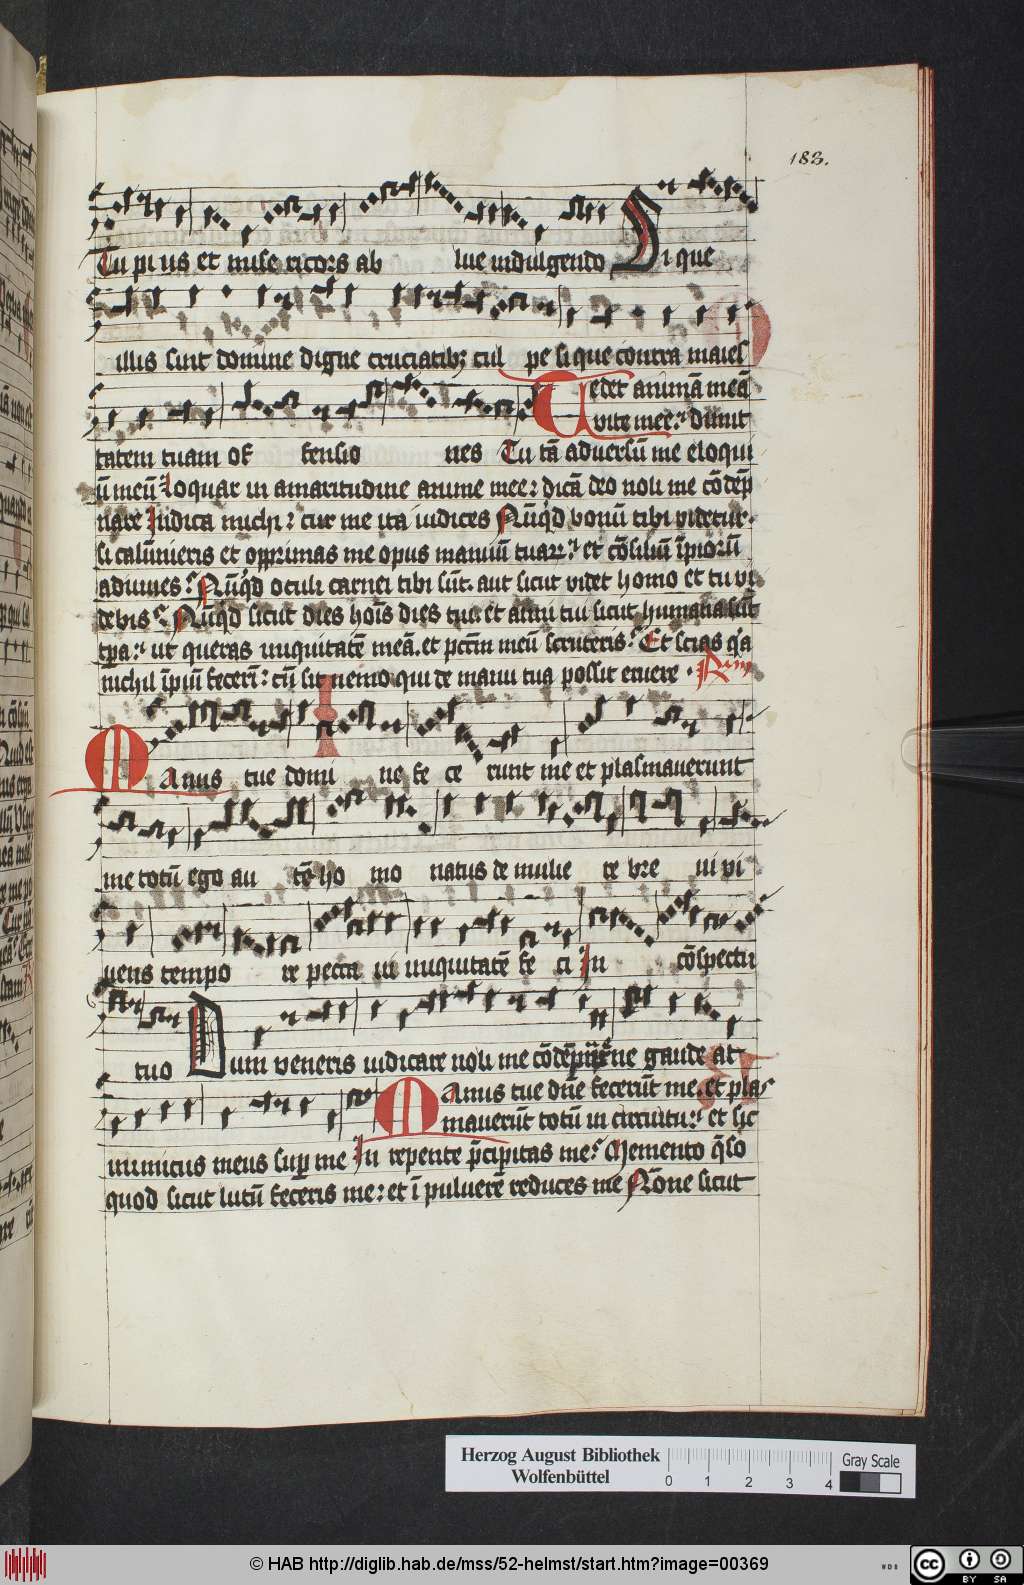 183.
Tu pi us et mise ricors ab lue indulgendo Si que
illis sunt domine digne cruciatib; cul pe si que contra maies
Tedet animā meā
vite mee: dimit
tatem tuam of fensio nes Tu tā adversū me eloqui
ū meū loquar in amaritudine anime mee: dicā deo noli me cōdēp
nare Indica michi: cur me ita iudices Nūqd bonū tibi videtur.
si calūnieris et opprimas me opus manuū tuaꝝ: et cōsiliū īpiorū
adiuues: Nūqd oculi carnei tibi sūt. aut sicut videt homo et tu vi
debis: Nūqd sicut dies hoīs dies tui et anni tui sicut humana sūt
tpa: ut queras iniquitatē meā. et pctm meū scruteris: Et scias qa
nichil īpiū fecerī: cū sit nemo qui de manu tua possit eruere. Rm
Manus tue domi ne fe ce runt me et plasmaverunt
me totū ego au tē ho mo natus de mulie re bre ui vi
uens tempo re pecca ui iniquitatē fe ci In cōspectu
tuo Dum veneris iudicare noli me cōdēpnare ne gaude at
Manus tue dn̄e fecerūt me. et plas
maverūt totū in circuitu: et sic
inimicus meus sup me In repente p̄cipitas me: Memento q̄so
quod sicut lutū feceris me: et ī pulverē reduces me Nōne sicut
Herzog August Bibliothek
Wolfenbüttel
0 1 2 3 4
Gray Scale
© HAB http://diglib.hab.de/mss/52-helmst/start.htm?image=00369
WDB
cc BY SA